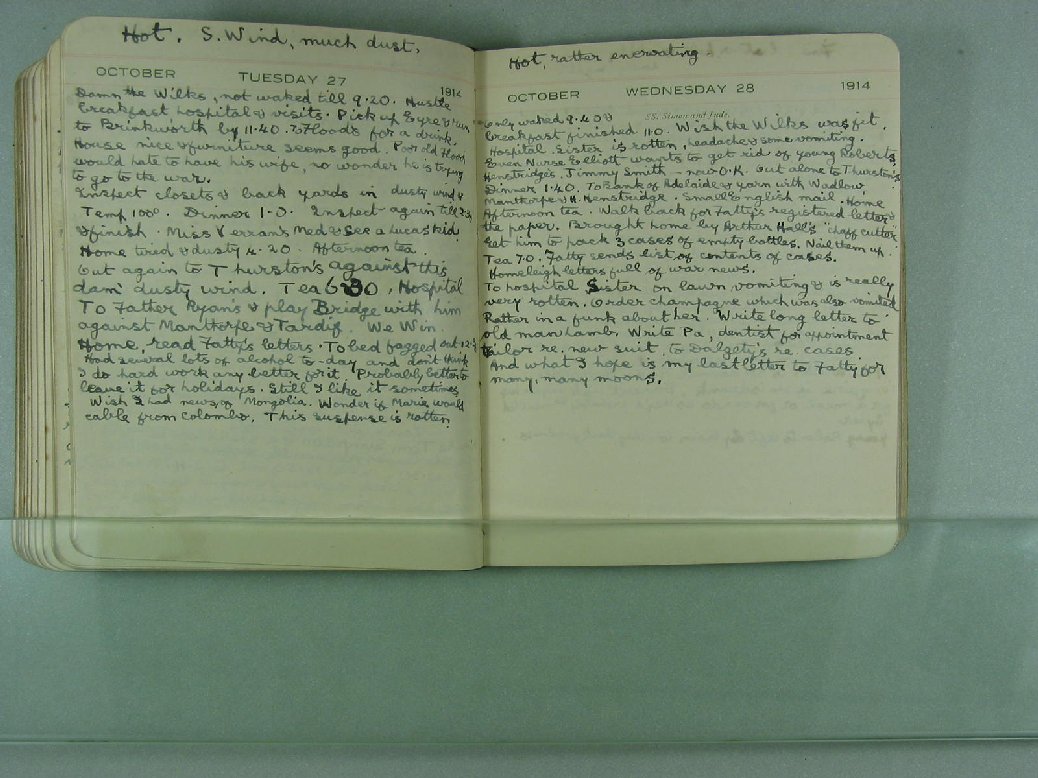 Hot. S. Wind, much dust.
OCTOBER TUESDAY 27 1914
Damn the Wilks, not waked till 9.20. Hustle
breakfast hospital & visits. Pick up Eyre & run
to Brinkworth by 11.40. To Floods for a drink.
House nice & furniture seems good. Poor old Flood,
would hate to have his wife, no wonder he is trying
to go to the war.
Inspect closets & back yards in dusty wind &
Temp 100°. Dinner 1.0. Inspect again till
& finish. Miss Verran's Med & see a Lucas kid.
Home tired & dusty 4.20. Afternoon tea
Out again to Thurston's against this
dam dusty wind. Tea 6.30. Hospital
To Father Ryan's & play Bridge with him
against Manthorpe & Tardif. We Win.
Home, read Fatty's letters. To bed fagged out 12.
Had several lots of alcohol to-day and don't think
I do hard work any better for it. Probably better to
leave it for holidays. Still I like it sometimes
Wish I had news of Mongolia. Wonder if Marie would
cable from Colombo. This suspense is rotten.
Hot, rather enervating
OCTOBER WEDNESDAY 28 1914
SS. Simon and Jude
Only waked 9.40 &
breakfast finished 11.0. Wish the Wilks was fit.
Hospital. Sister is rotten, headache & some vomiting.
Even Nurse Elliott wants to get rid of young Roberts,
Henstridge's. Jimmy Smith - now O.K. Out alone to Thurston's
Dinner 1.40. To Bank of Adelaide & yarn with Wadlow,
Manthorpe & H. Henstridge. Small English mail. Home
Afternoon tea. Walk back for Fatty's registered letter &
the paper. Brought home by Arthur Hall's chaff cutter.
Get him to pack 3 cases of empty bottles. Nail them up.
Tea 7.0. Fatty sends list of contents of cases.
Homeleigh letters full of war news.
To hospital Sister on lawn vomiting & is really
very rotten. Order champagne which was also vomited
Rather in a funk about her. Write long letter to
old man Lamb. Write Pa, dentist for appointment
tailor re. new suit, to Dalgety's re. cases.
And what I hope is my last letter to Fatty for
many, many moons.